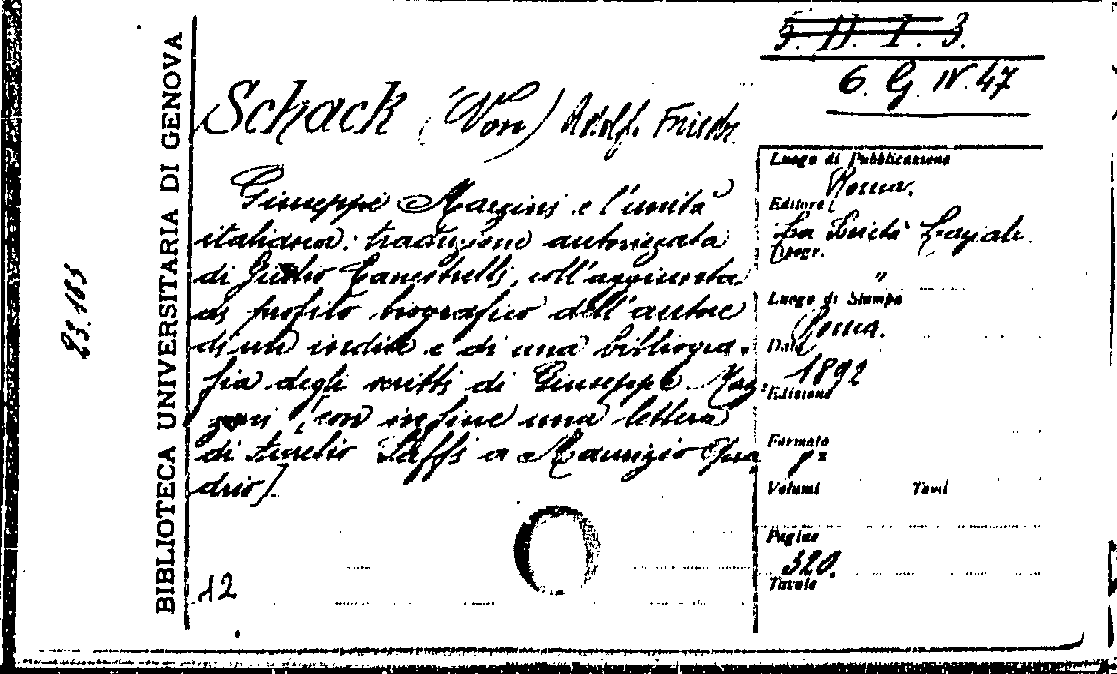 5. II. I. 3.
6. G. IV. 47
BIBLIOTECA UNIVERSITARIA DI GENOVA
23.183
Schack (Von) Adolf. Friedr.
Giuseppe Mazzini e l'unità
italiana: traduzione autorizzata
di Giulio Canestrelli, coll'aggiunta
di profilo biografico dell'autore
di un indice e di una bibliogra-
fia degli scritti di Giuseppe Maz-
zini [con infine una lettera
di Aurelio Saffi a Maurizio Qua
drio].
12
Luogo di Pubblicazione
Roma.
Editore
La Società Laziale
Tipogr.
"
Luogo di Stampa
Roma.
Data
1892
Edizione
Formato
Volumi Tomi
Pagine
320.
Tavole